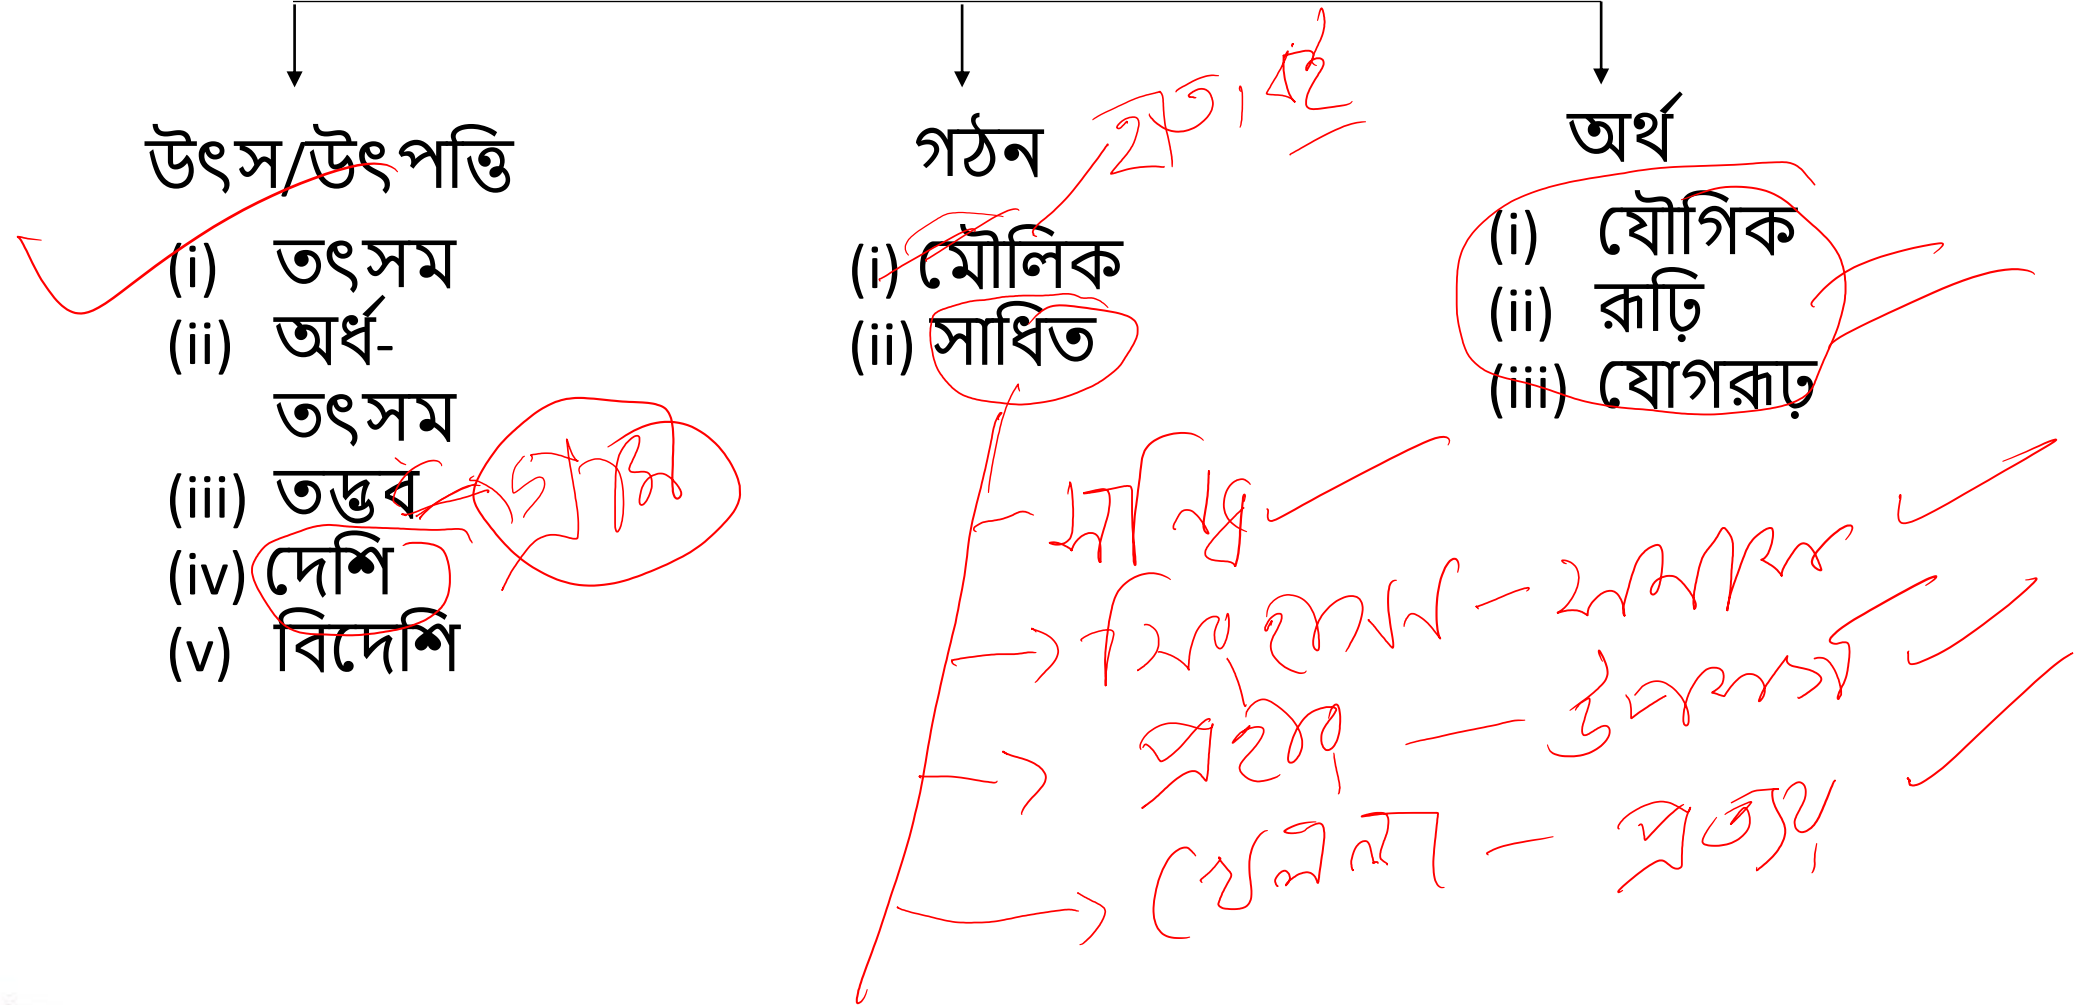 উৎস/উৎপত্তি
(i) তৎসম
(ii) অর্ধ-
তৎসম
(iii) তদ্ভব
(iv) দেশি
(v) বিদেশি
গঠন
হাত, বই
(i) মৌলিক
(ii) সাধিত
সন্ধি
সিংহাসন – সমাস
প্রহার – উপসর্গ
খেলনা – প্রত্যয়
অর্থ
(i) যৌগিক
(ii) রূঢ়ি
(iii) যোগরূঢ়